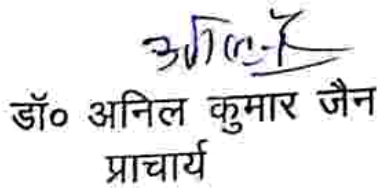 डॉ० अनिल कुमार जैन
प्राचार्य